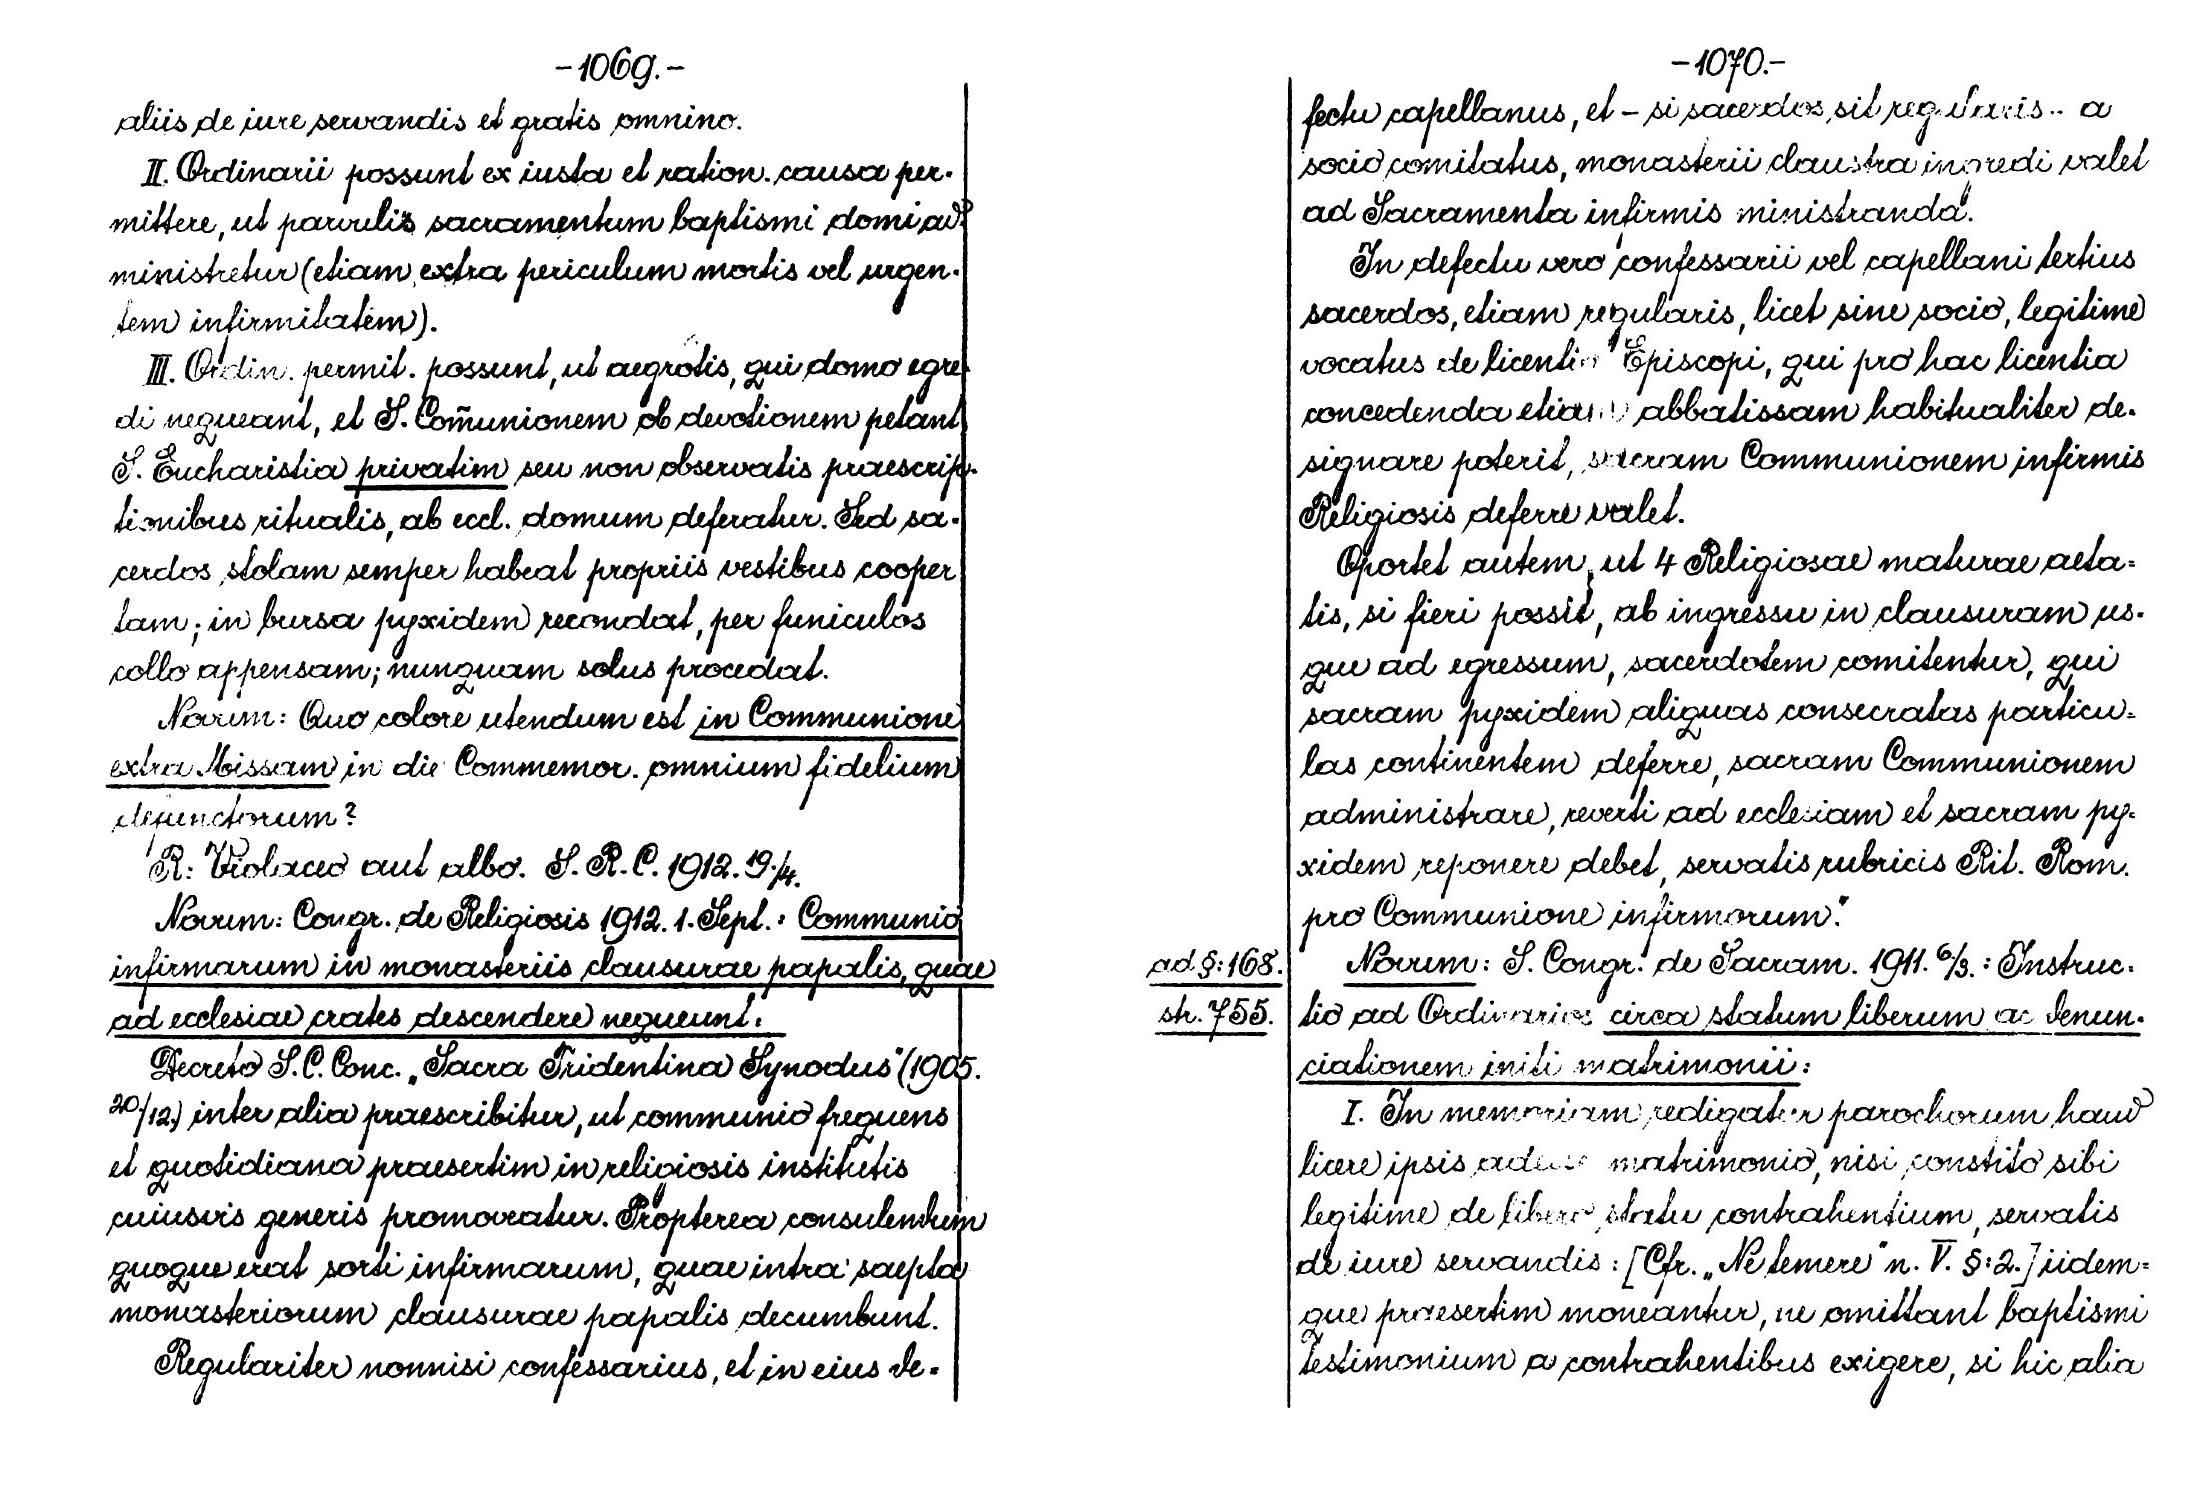 -1069.-
aliis de iure servandis et gratis omnino.
II. Ordinarii possunt ex iusta et ration. causa per-
mittere, ut parvulis sacramentum baptismi domi ad
ministretur (etiam extra periculum mortis vel urgen-
tem infirmitatem).
III. Ordin. permit. possunt, ut aegrotis, qui domo egre-
di nequeant, et S. Com̃unionem ob devotionem petant
S. Eucharistia privatim seu non observatis praescrip-
tionibus ritualis, ab eccl. domum deferatur. Sed sa-
cerdos stolam semper habeat propriis vestibus cooper
tam; in bursa pyxidem recondat, per funiculos
collo appensam; nunquam solus procedat.
Novum: Quo colore utendum est in Communione
extra Missam in die Commemor. omnium fidelium
defunctorum?
R: Violaceo aut albo. S. R. C. 1912. 19./4.
Novum: Congr. de Religiosis 1912. 1. Sept.: Communio
infirmarum in monasteriis clausurae papalis, quae
ad ecclesiae crates descendere nequeunt.
Decreto S. C. Conc. „Sacra Tridentina Synodus" (1905.
20/12.) inter alia praescribitur, ut communio frequens
et quotidiana praesertim in religiosis institutis
cuiusvis generis promoveatur. Propterea consulendum
quoque erat sorti infirmarum, quae intra saepta
monasteriorum clausurae papalis decumbunt.
Regulariter nonnisi confessarius, et in eius de-
-1070.-
fectu capellanus, et - si sacerdos sit regularis - a
socio comitatus, monasterii claustra ingredi valet
ad Sacramenta infirmis ministranda.
In defectu vero confessarii vel capellani tertius
sacerdos, etiam regularis, licet sine socio, legitime
vocatus de licentia Episcopi, qui pro hac licentia
concedenda etiam abbatissam habitualiter de-
signare poterit, sacram Communionem infirmis
Religiosis deferre valet.
Oportet autem, ut 4 Religiosae maturae aeta=
tis, si fieri possit, ab ingressu in clausuram us-
que ad egressum, sacerdotem comitentur, qui
sacram pyxidem aliquas consecratas particu=
las continentem deferre, sacram Communionem
administrare, reverti ad ecclesiam et sacram py-
xidem reponere debet, servatis rubricis Rit. Rom.
pro Communione infirmorum."
ad §: 168.
str. 755.
Novum: S. Congr. de Sacram. 1911. 6/3.: Instruc-
tio ad Ordinarios circa statum liberum ac denun-
ciationem initi matrimonii:
I. In memoriam redigatur parochorum haud
licere ipsis adesse matrimonio, nisi constito sibi
legitime de libero statu contrahentium, servatis
de iure servandis: [Cfr. „Ne temere" n. V. §: 2.] iidem=
que praesertim moneantur, ne omittant baptismi
testimonium a contrahentibus exigere, si hic alia